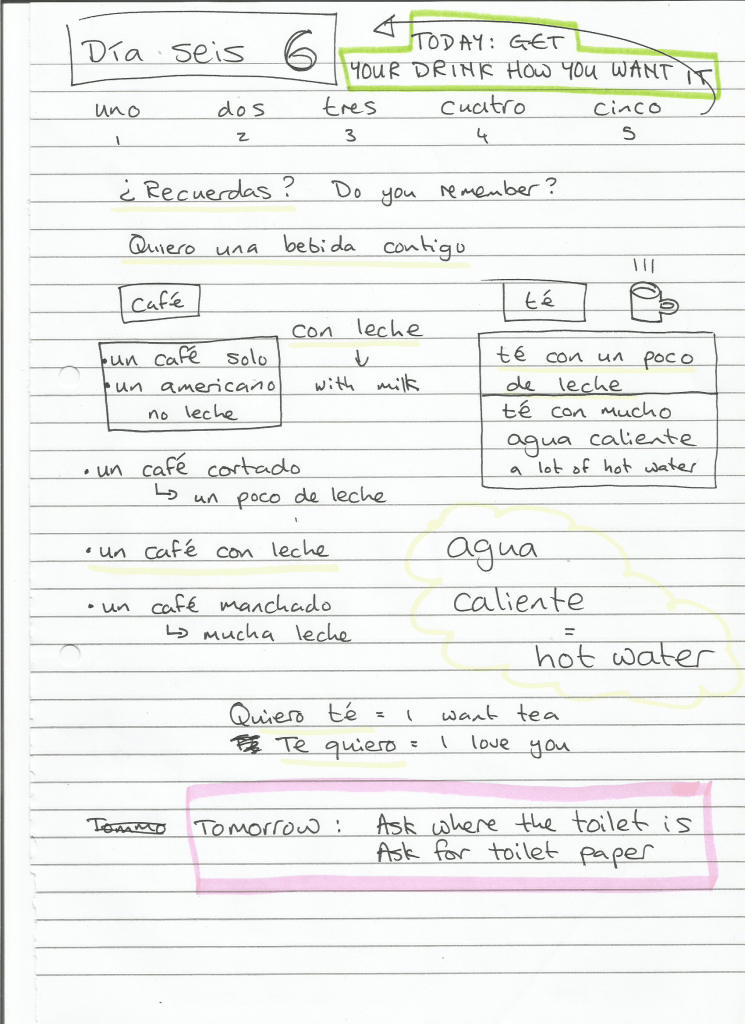 Día seis 6
TODAY: GET
YOUR DRINK HOW YOU WANT IT
uno dos tres cuatro cinco
1 2 3 4 5
¿Recuerdas? Do you remember?
Quiero una bebida contigo
café
con leche
↓
with milk
• un café solo
• un americano
no leche
• un café cortado
↳ un poco de leche
• un café con leche
• un café manchado
↳ mucha leche
té
té con un poco
de leche
té con mucho
agua caliente
a lot of hot water
agua
caliente
=
hot water
Quiero té = I want tea
Te quiero = I love you
Tommo Tomorrow: Ask where the toilet is
Ask for toilet paper